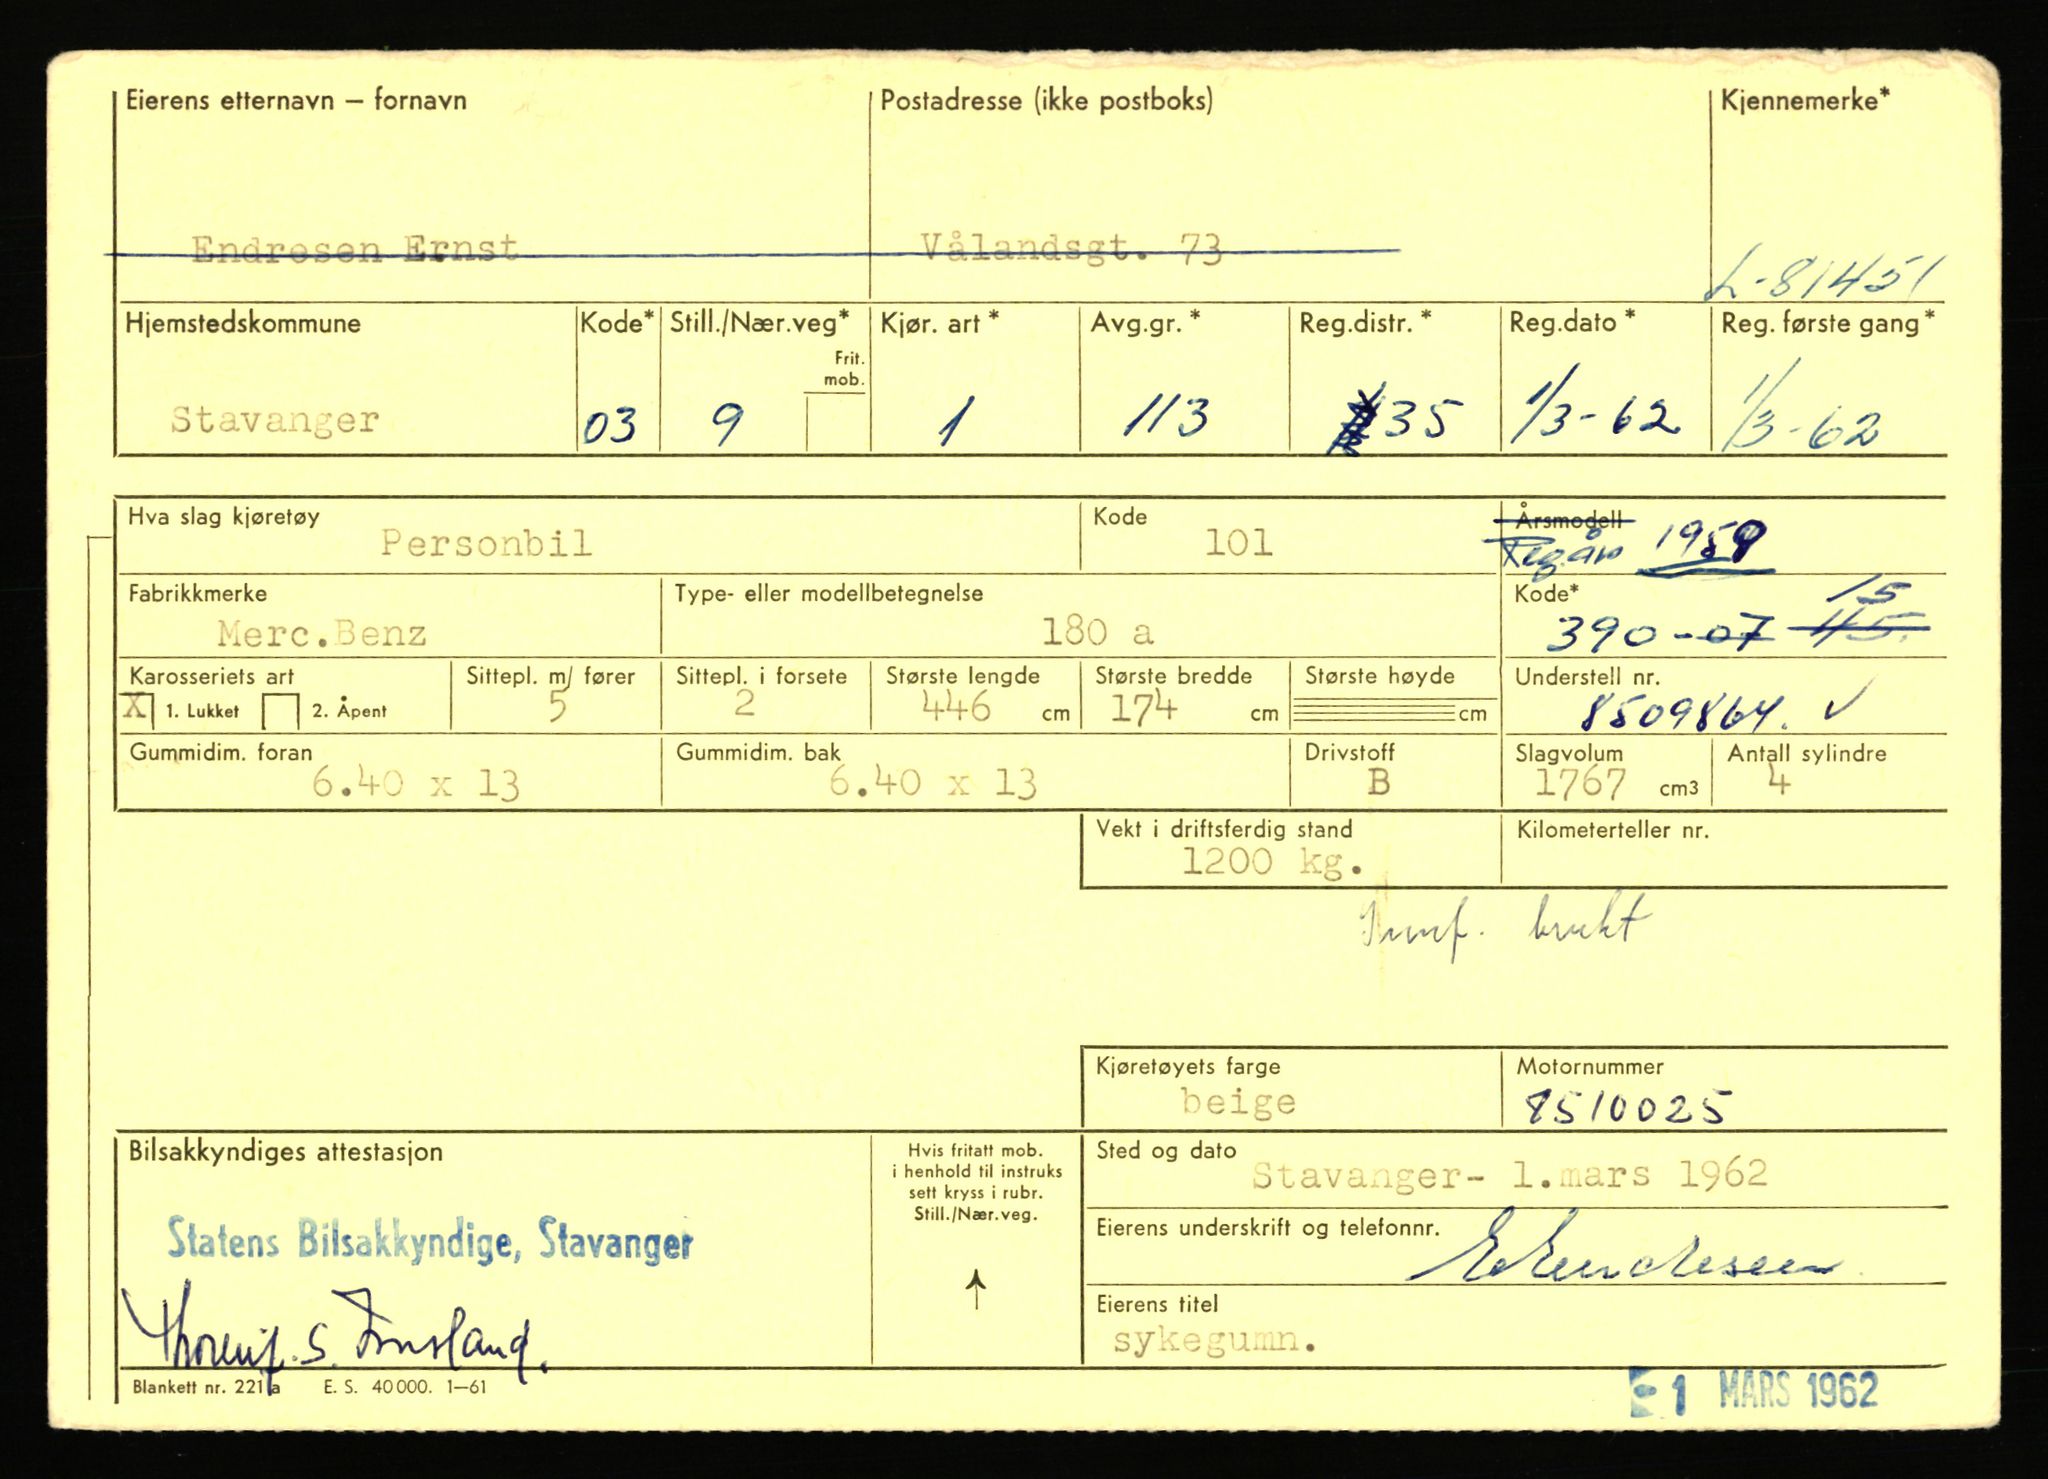 Eierens etternavn – fornavn Postadresse (ikke postboks) Kjennemerke*
Endresen Ernst Vålandsgt. 73 L-81451
Hjemstedskommune Kode* Still./Nær.veg* Kjør. art* Avg.gr.* Reg.distr.* Reg.dato* Reg. første gang*
Frit.
mob.
Stavanger 03 9 1 113 35 1/3-62 1/3-62
Hva slag kjøretøy Kode Årsmodell
Personbil 101 Reg.år 1959
Fabrikkmerke Type- eller modellbetegnelse Kode* 15
Merc.Benz 180 a 390-07 45
Karosseriets art Sittepl. m/ fører Sittepl. i forsete Største lengde Største bredde Største høyde Understell nr.
X 1. Lukket 2. Åpent 5 2 446 cm 174 cm cm 8509864. ✓
Gummidim. foran Gummidim. bak Drivstoff Slagvolum Antall sylindre
6.40 x 13 6.40 x 13 B 1767 cm3 4
Vekt i driftsferdig stand Kilometerteller nr.
1200 kg.
brukt
Kjøretøyets farge Motornummer
beige 8510025
Bilsakkyndiges attestasjon
Hvis fritatt mob.
i henhold til instruks
sett kryss i rubr.
Still./Nær.veg.
Sted og dato
Stavanger- 1.mars 1962
Statens Bilsakkyndige, Stavanger
Eierens underskrift og telefonnr.
E Endresen
Eierens titel
sykegumn.
Blankett nr. 221 a E. S. 40000. 1–61
1 MARS 1962